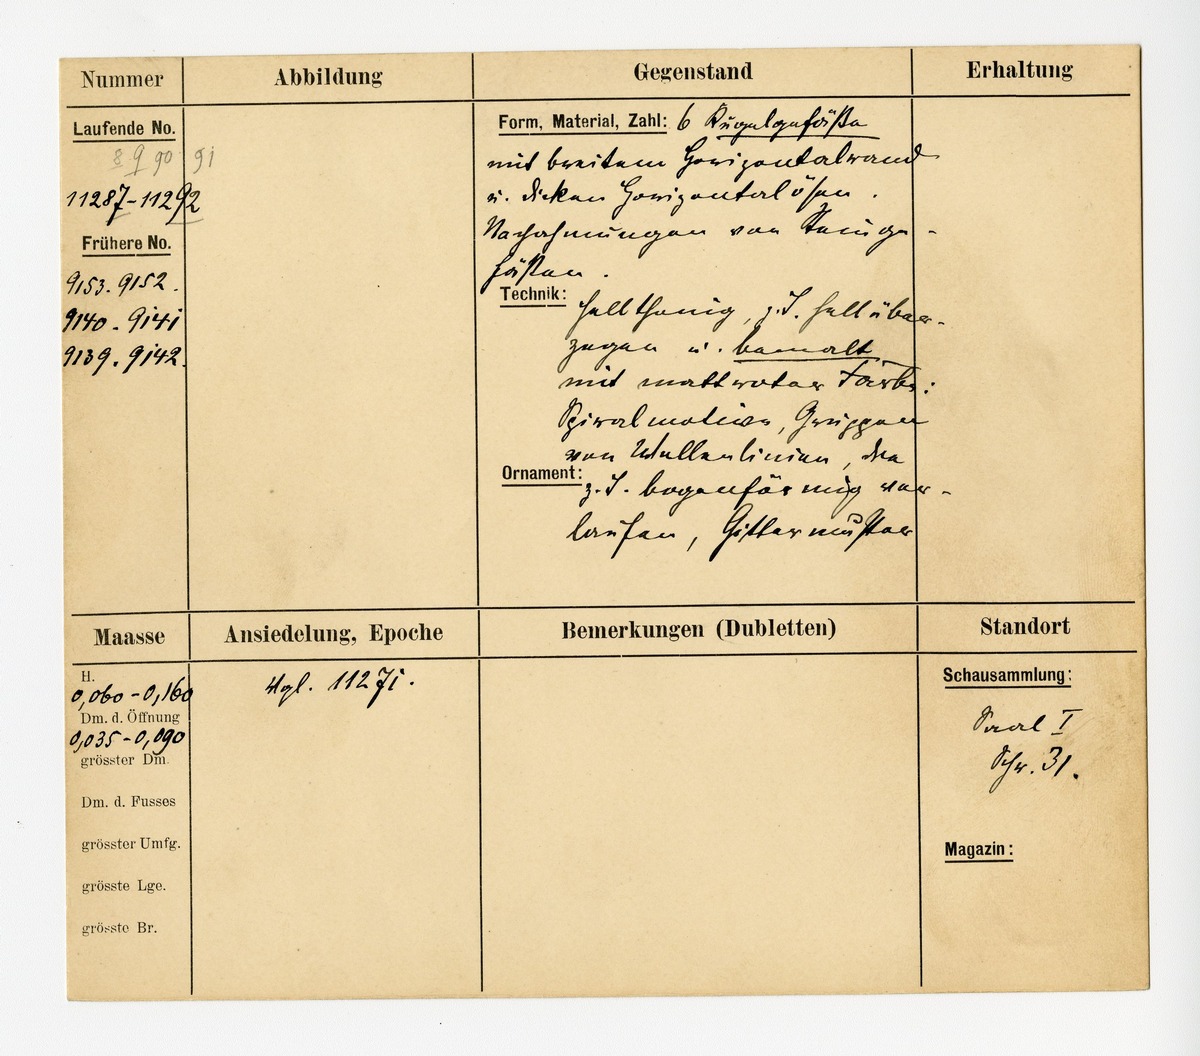 Nummer
Abbildung
Gegenstand
Erhaltung
Laufende No.
8 9 90 91
11287-11292
Frühere No.
9153. 9152.
9140 - 9141
9139. 9142.
Form, Material, Zahl: 6 Kugelgefäße
mit breitem Horizontalrand
u. dicken Horizontalösen.
Nachahmungen von Steinge-
fäßen.
Technik:
hellthonig, z.T. hell über-
zogen u. bemalt
mit mattroter Farbe:
Spiralmotive, Gruppen
von Wellenlinien, die
Ornament:
z.T. bogenförmig ver-
laufen, Gittermuster
Maasse
Ansiedelung, Epoche
Bemerkungen (Dubletten)
Standort
H.
0,060 - 0,160
Dm. d. Öffnung
0,035 - 0,090
grösster Dm.
Dm. d. Fusses
grösster Umfg.
grösste Lge.
grösste Br.
Vgl. 11271.
Schausammlung:
Saal I
Schr. 31.
Magazin: